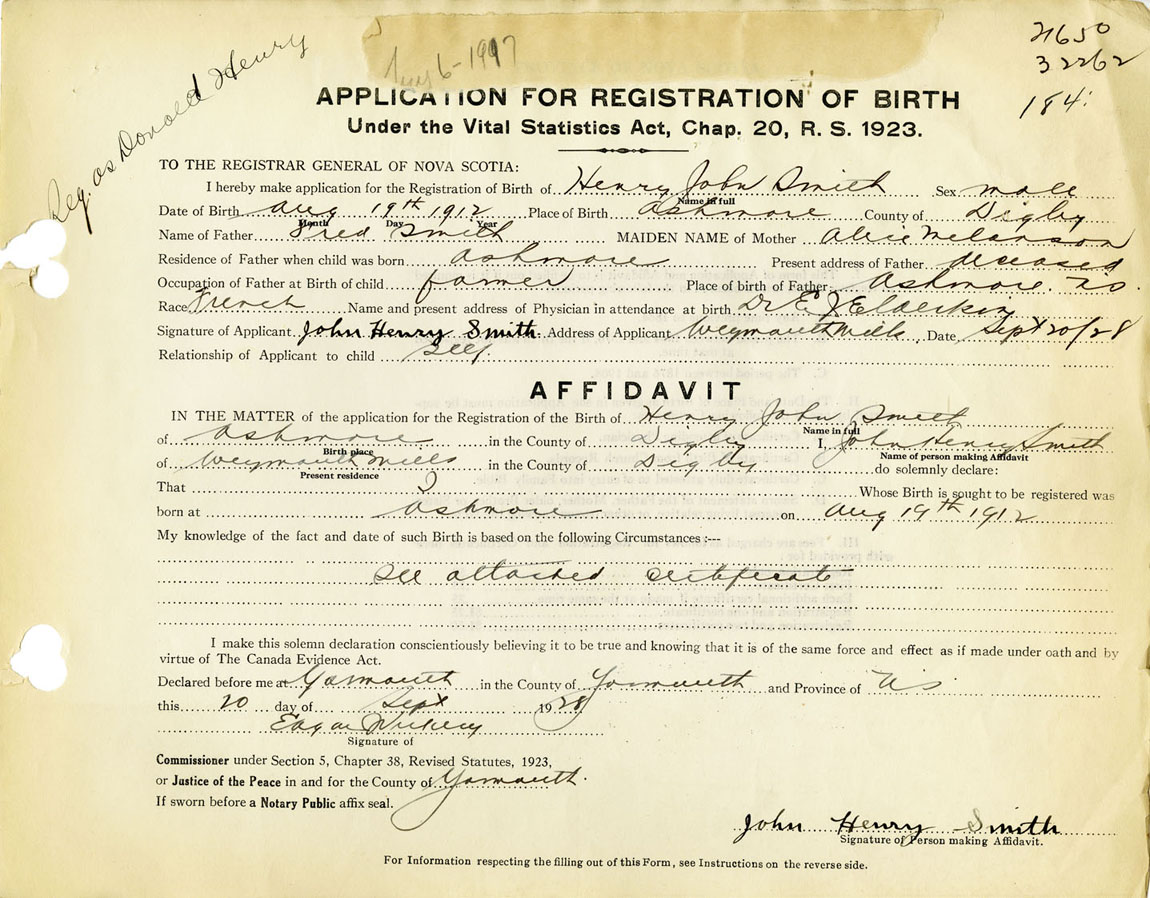 Reg. as Donald Henry
6-1997
2650
32262
184
APPLICATION FOR REGISTRATION OF BIRTH
Under the Vital Statistics Act, Chap. 20, R. S. 1923.
TO THE REGISTRAR GENERAL OF NOVA SCOTIA:
I hereby make application for the Registration of Birth of Henry John Smith Sex male
Name in full
Date of Birth Aug 19th 1912 Place of Birth Ashmore County of Digby
Month Day Year
Name of Father Fred Smith MAIDEN NAME of Mother Alice Melanson
Residence of Father when child was born Ashmore Present address of Father deceased
Occupation of Father at Birth of child farmer Place of birth of Father: Ashmore. NS.
Race French Name and present address of Physician in attendance at birth Dr E. J. Elderkin
Signature of Applicant John Henry Smith Address of Applicant Weymouth Mills Date Sept 20/28
Relationship of Applicant to child Self
AFFIDAVIT
IN THE MATTER of the application for the Registration of the Birth of Henry John Smith
Name in full
of Ashmore in the County of Digby I, John Henry Smith
Birth place Name of person making Affidavit
of Weymouth Mills in the County of Digby do solemnly declare:
Present residence
That I Whose Birth is sought to be registered was
born at Ashmore on Aug 19th 1912
My knowledge of the fact and date of such Birth is based on the following Circumstances:---
See attached certificate
I make this solemn declaration conscientiously believing it to be true and knowing that it is of the same force and effect as if made under oath and by
virtue of The Canada Evidence Act.
Declared before me at Yarmouth in the County of Yarmouth and Province of NS
this 20 day of Sept 1928
Edgar
Signature of
Commissioner under Section 5, Chapter 38, Revised Statutes, 1923,
or Justice of the Peace in and for the County of Yarmouth.
If sworn before a Notary Public affix seal.
John Henry Smith
Signature of Person making Affidavit.
For Information respecting the filling out of this Form, see Instructions on the reverse side.